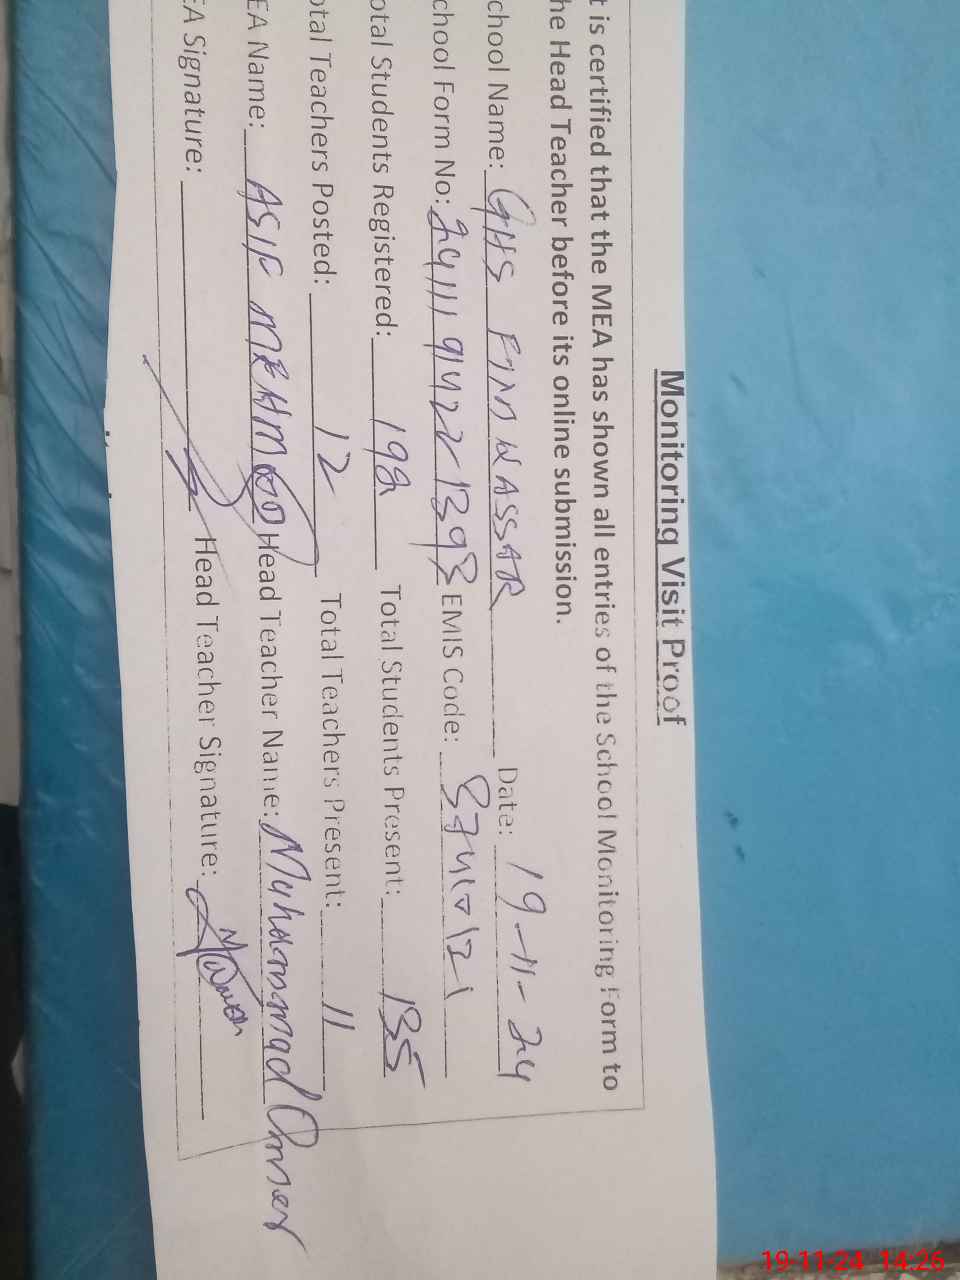 Monitoring Visit Proof
t is certified that the MEA has shown all entries of the School Monitoring Form to
he Head Teacher before its online submission.
chool Name: GHS WASSAR Date: 19-11-24
chool Form No: 24111942213 93 EMIS Code: 37410121
otal Students Registered: 198 Total Students Present: 135
otal Teachers Posted: 12 Total Teachers Present: 11
EA Name: ASIF MEHMOOD Head Teacher Name: Muhammad Omer
EA Signature: Head Teacher Signature:
19-11-24 14:26